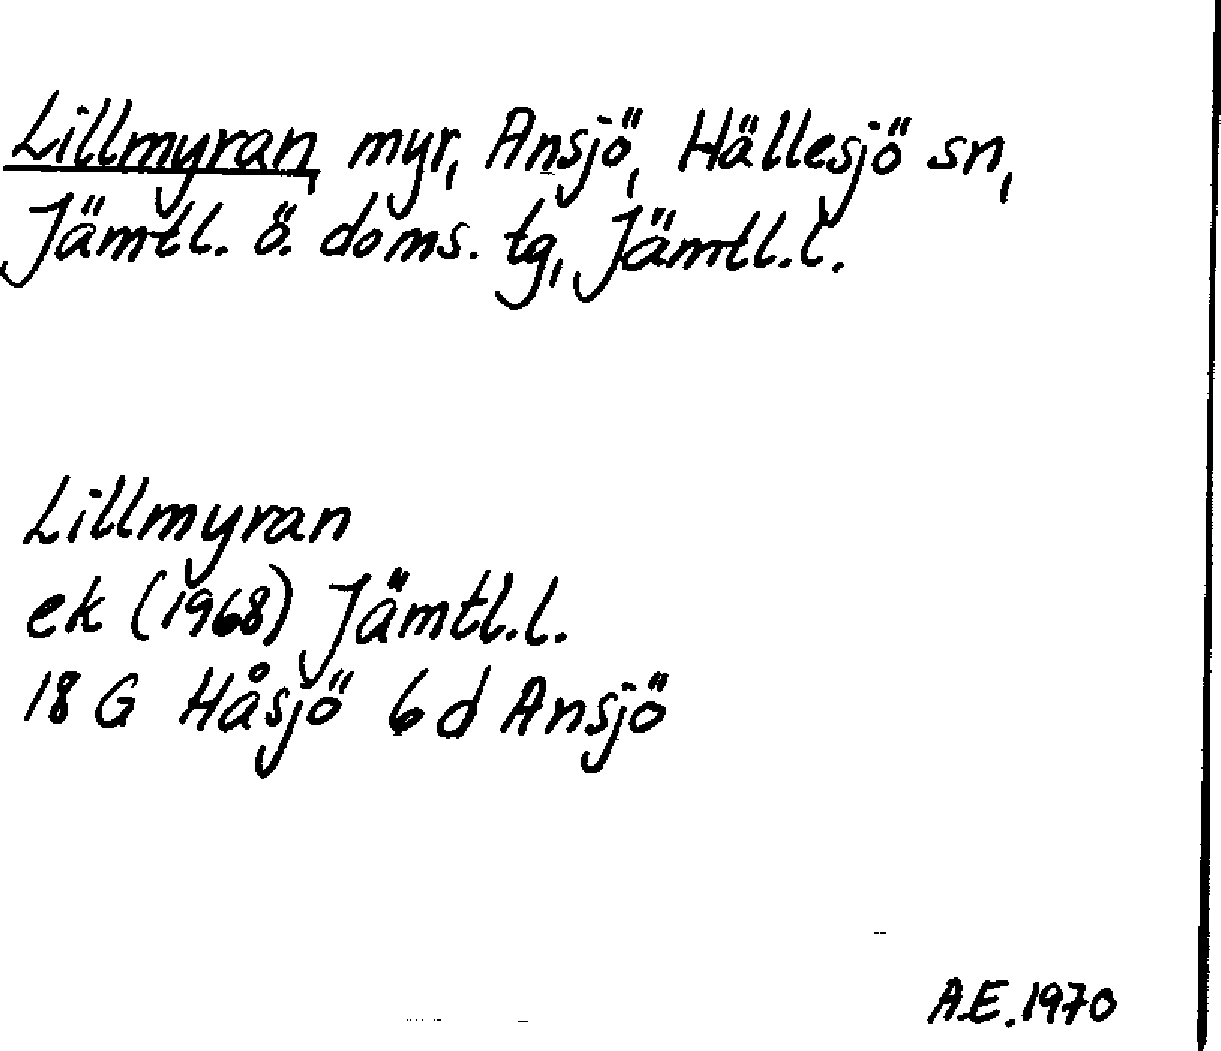 Lillmyran, myr, Ansjö, Hällesjö sn,
Jämtl. ö. doms. tg, Jämtl.l.
Lillmyran
ek (1968) Jämtl.l.
18 G Håsjö 6 d Ansjö
A.E. 1970